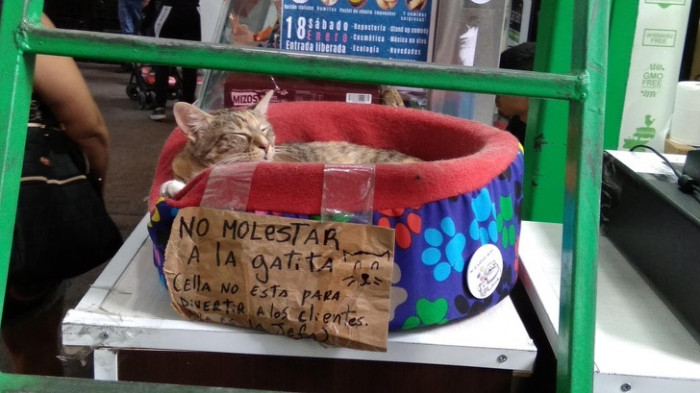 18 Sábado
Enero
Entrada liberada
-Repostería -Stand up comedy
-Cosmética -Música en vivo
-Ecología -Novedades
MIZOS
FREE
GMO
FREE
NO MOLESTAR
A la gatita
Cella NO ESTA PARA
DIVERTIR A los clientes.
la Jefa